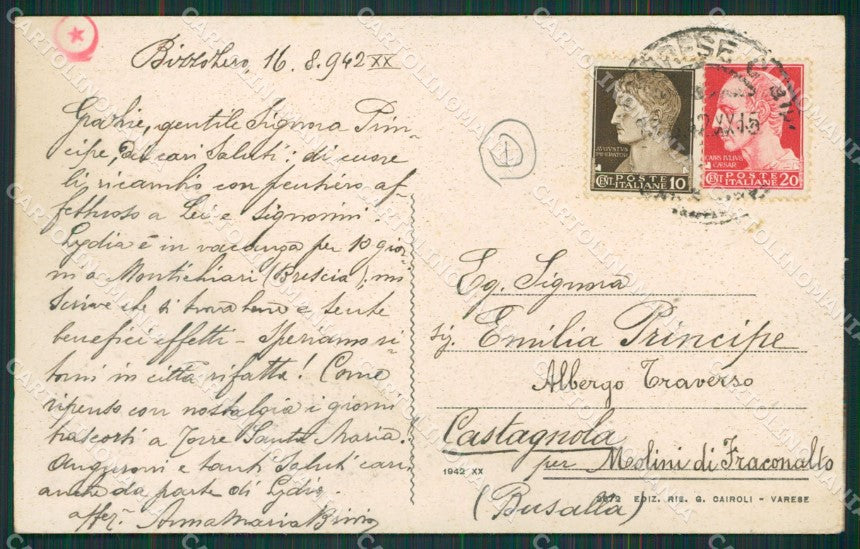 Bizzozero, 16.8.942 XX
Grazie, gentile Signora Prin-
cipe, dei cari saluti: di cuore
li ricambio con pensiero af-
fettuoso a Lei e signorini.
Lydia è in vacanza per 10 gior-
ni a Montichiari (Brescia), mi
scrive che si trova bene e sente
benefici effetti - Speriamo ri-
torni in città rifatta! Come
ripenso con nostalgia i giorni
trascorsi a Torre Santa Maria!!
Auguroni e tanti saluti cari
anche da parte di Lydia.
aff. Annamaria
VARESE
42.XX 15
AUGUSTUS
IMPERATOR
CENT. POSTE ITALIANE 10
CAIUS IULIUS
CAESAR
CENT. POSTE ITALIANE 20
Eg. Signora
Sig. Emilia Principe
Albergo Traverso
Castagnola
per Molini di Fraconalto
(Busalla)
1942 XX
2272 EDIZ. RIS. G. CAIROLI - VARESE
CARTOLINOMANIA